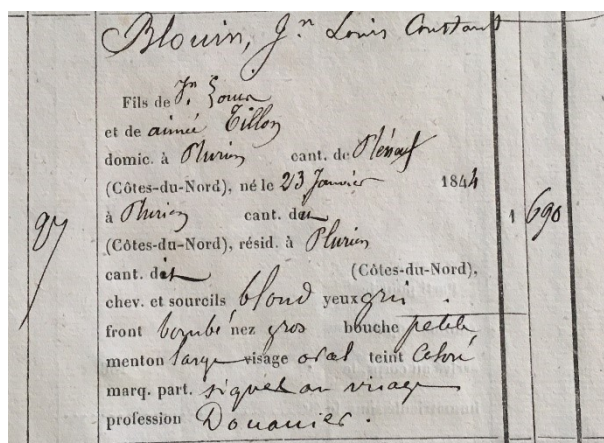 Blouin, Jn Louis Constant
Fils de Jn Louis
et de aimée Tillon
domic. à Plurien cant. de Pléneuf
(Côtes-du-Nord), né le 23 Janvier 1844
à Plurien cant. de
(Côtes-du-Nord), résid. à Plurien
87 1 690
cant. de (Côtes-du-Nord),
chev. et sourcils blond yeux gris
front bombé nez gros bouche petite
menton large visage oval teint coloré
marq. part. au visage
profession Douanier.